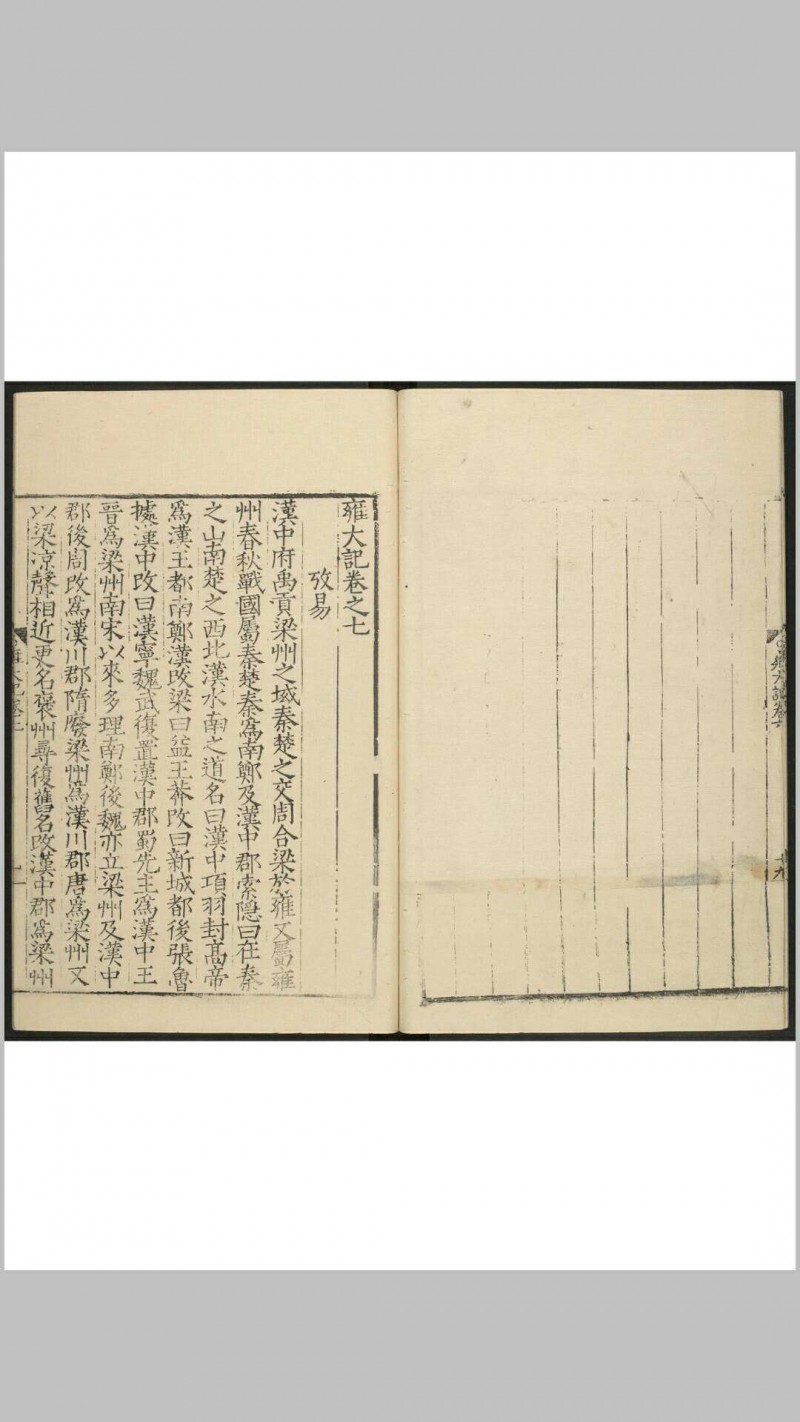 雍大記卷之七
攷易
漢中府禹貢梁州之域秦楚之交周合梁於雍又屬雍
州春秋戰國屬秦楚秦爲南鄭及漢中郡索隱曰在秦
之山南楚之西北漢水南之道名曰漢中項羽封髙帝
爲漢王都南鄭漢攺梁曰益王莽攺曰新城都後張魯
據漢中攺曰漢寧魏武復置漢中郡蜀先主爲漢中王
晉爲梁州南宋以來多理南鄭後魏亦立梁州及漢中
郡後周攺爲漢川郡隋廢梁州爲漢川郡唐爲梁州又
以梁凉聲相近更名褒州尋復舊名攺漢中郡爲梁州